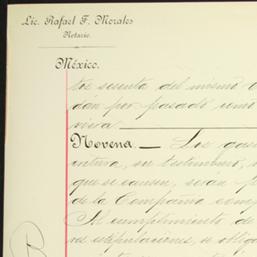 Lic. Rafael F. Morales
Notario.
México.
tos sesenta del mismo
dan por pasado como
viva
Novena. — Los gas
entura, su testimonio,
que se causen, serán
de la Compañía com
Al cumplimiento de
res estipulaciones, se oblig